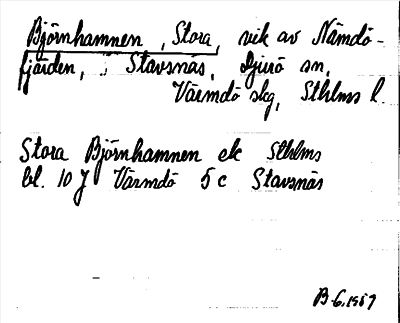 Björnhamnen, Stora, vik av Nämdö-
fjärden, i Stavsnäs, Djurö sn,
Värmdö skg, Sthlms l.
Stora Björnhamnen ek Sthlms
bl. 10 J Värmdö 5 c Stavsnäs
B-6, 1957